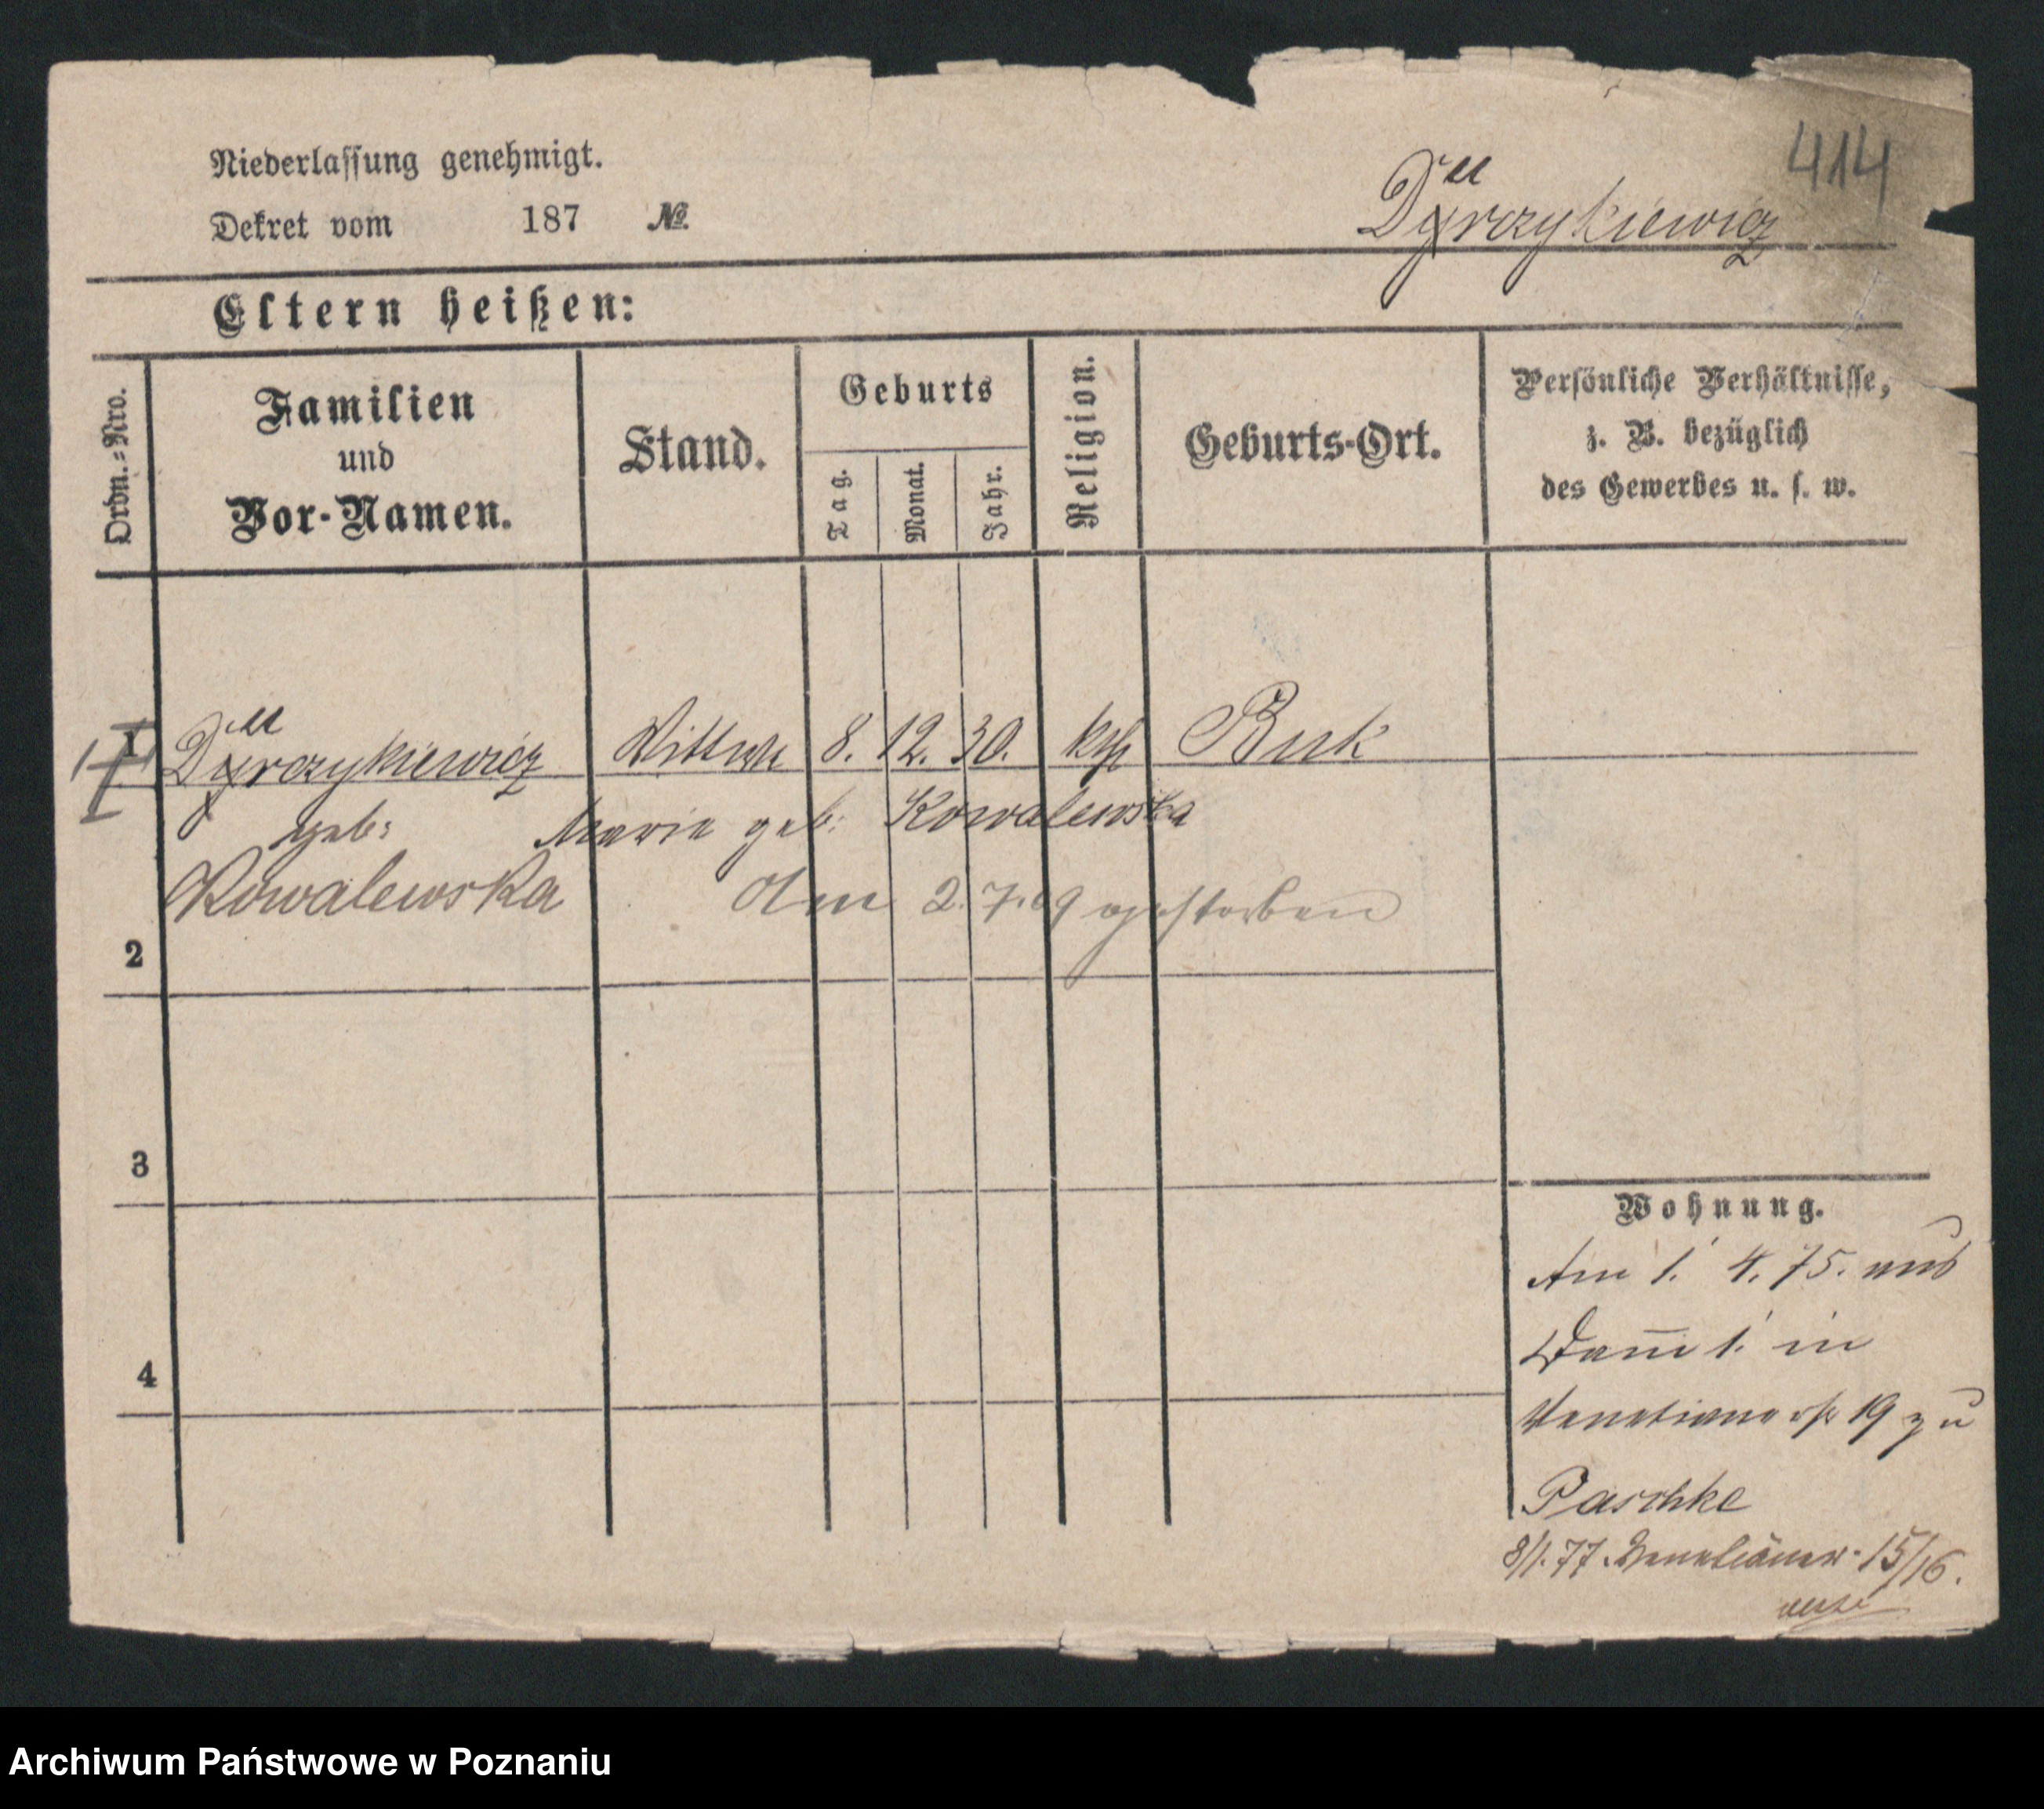 414
Niederlassung genehmigt.
Dekret vom 187 №.
u
Dyrczykiewicz
Eltern heißen:
Ordn.-Nro.
Familien
und
Vor-Namen.
Stand.
Geburts
Tag.
Monat.
Jahr.
Religion.
Geburts-Ort.
Persönliche Verhältnisse,
z. B. bezüglich
des Gewerbes u. s. w.
u
1 Dyrczykiewicz Wittwe 8. 12. 30. kth Buk
geb: Maria geb: Kowalewska
Kowalewska Am 2.7.09 gestorben
2
3
4
Wohnung.
Am 1. 4. 75. aus
1. in
Venetianerstr 19 zu
Paschke
8/1.77 Venetianer- 15/16.
Archiwum Państwowe w Poznaniu